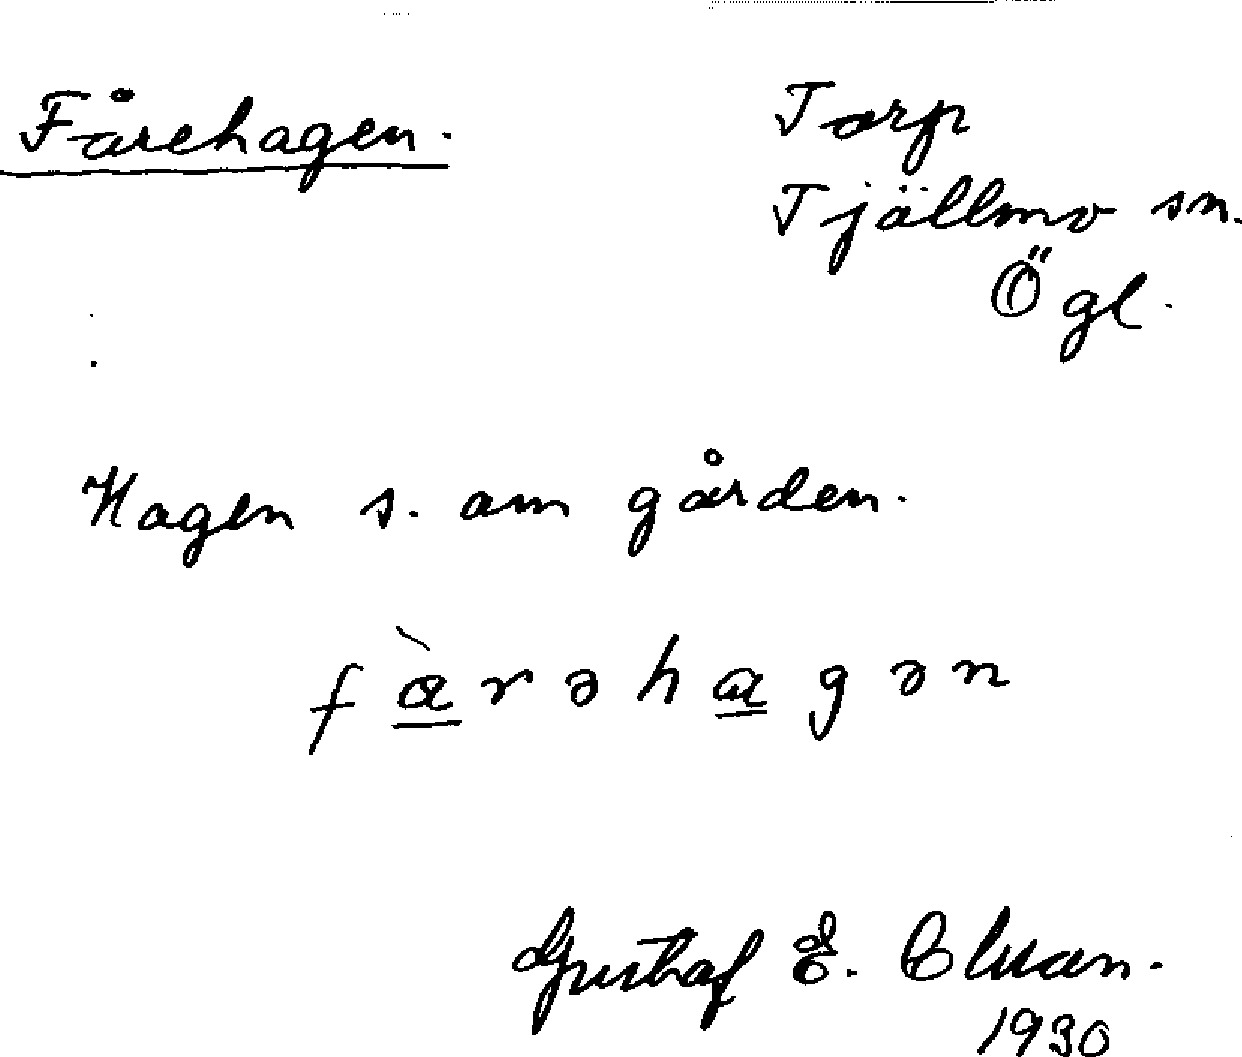 Fårehagen.
Torp
Tjällmo sn.
Ögl.
Hagen s. om gården.
fàrəhagən
Gustaf E.
1930